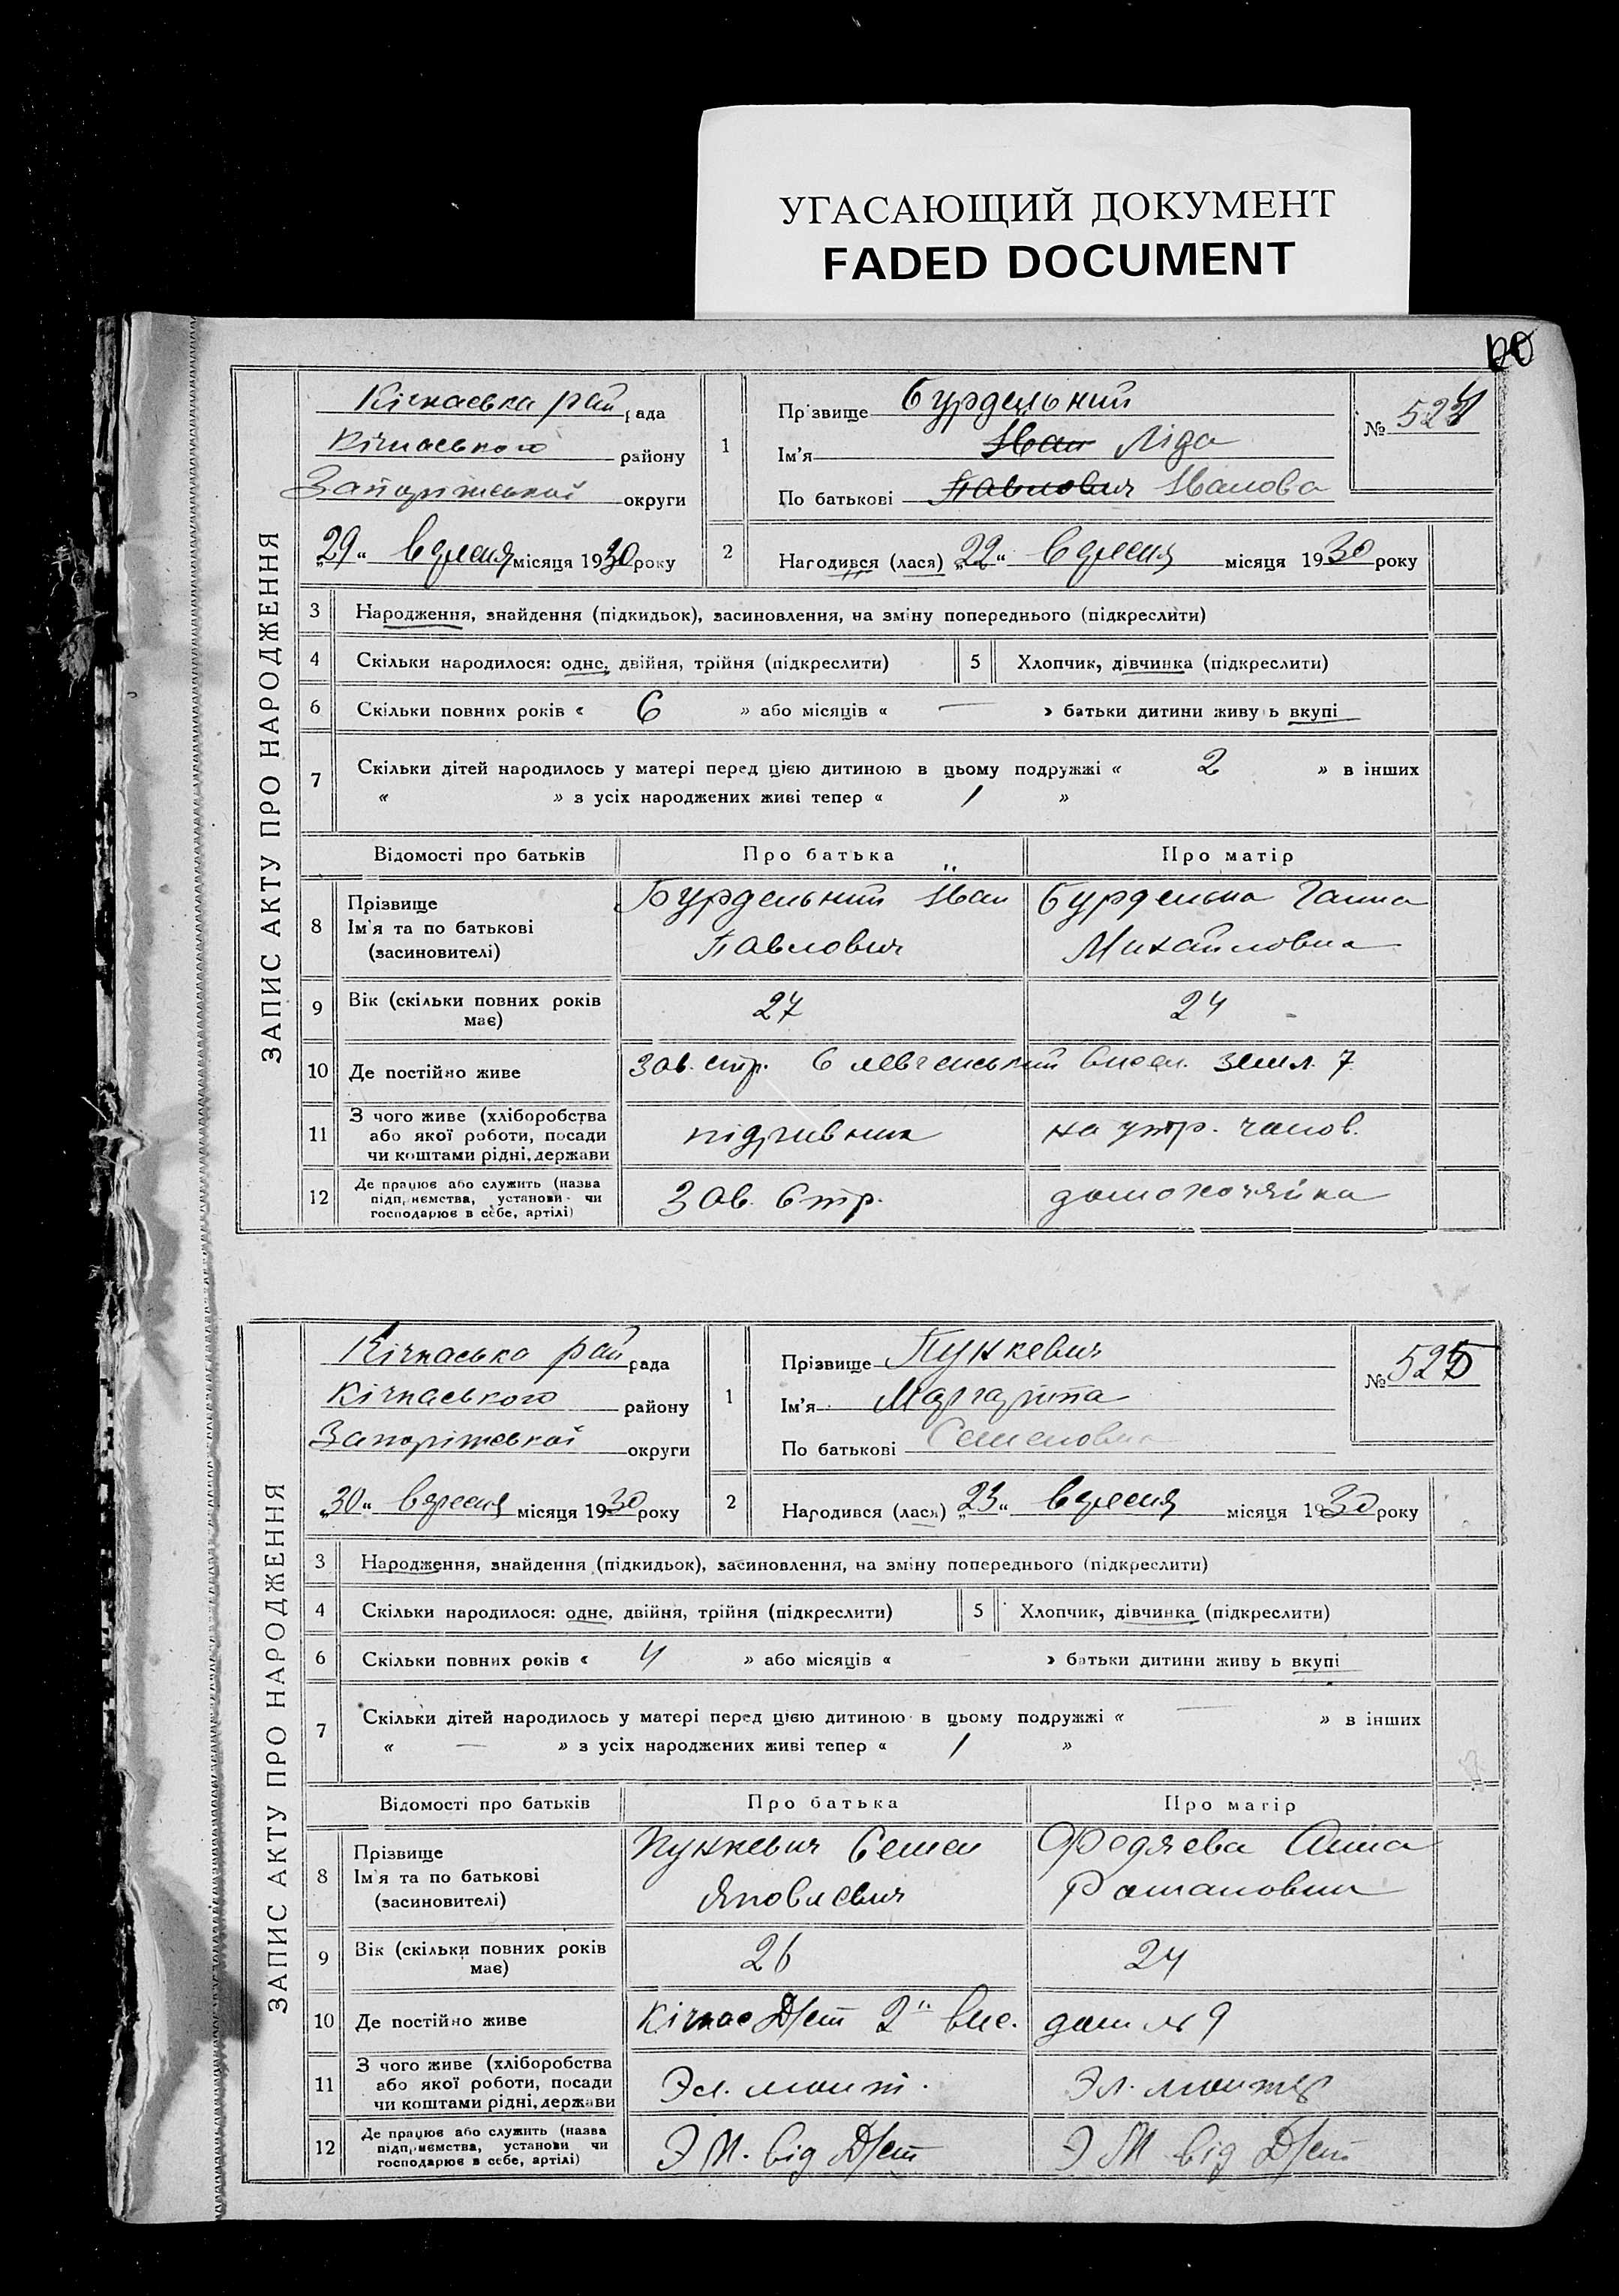 УГАСАЮЩИЙ ДОКУМЕНТ
FADED DOCUMENT
ЗАПИС АКТУ ПРО НАРОДЖЕННЯ
Кічкаська рай рада
Кічкаського району
Запоріжської округи
„29“ вересня місяця 1930 року
1 Прізвище Бурдельний
Ім'я Иван Ліда
По батькові Павлович Иванова
№ 524
2 Народився (лася) „22“ вересня місяця 1930 року
3 Народження, знайдення (підкидьок), засиновлення, на зміну попереднього (підкреслити)
4 Скільки народилося: одне, двійня, трійня (підкреслити) 5 Хлопчик, дівчинка (підкреслити)
6 Скільки повних років « 6 » або місяців « — » батьки дитини живуть вкупі
7 Скільки дітей народилось у матері перед цією дитиною в цьому подружжі « 2 » в інших
« » з усіх народжених живі тепер « 1 »
Відомості про батьків Про батька Про матір
8 Прізвище Ім'я та по батькові (засновителі) Бурдельний Иван Павлович Бурдельна Ганна Михайловна
9 Вік (скільки повних років має) 27 24
10 Де постійно живе Зав. стр. 6 землі. 7
11 З чого живе (хліборобства або якої роботи, посади чи коштами рідні, держави на утр. чолов.
12 Де працює або служить (назва підприємства, установи чи господарює в себе, артілі) Зав. Стр. домохозяйка
ЗАПИС АКТУ ПРО НАРОДЖЕННЯ
Кічкаська рай рада
Кічкаського району
Запоріжської округи
„30“ вересня місяця 1930 року
1 Прізвище Пункевич
Ім'я Маргарита
По батькові Семеновна
№ 525
2 Народився (лася) „23“ вересня місяця 1930 року
3 Народження, знайдення (підкидьок), засиновлення, на зміну попереднього (підкреслити)
4 Скільки народилося: одне, двійня, трійня (підкреслити) 5 Хлопчик, дівчинка (підкреслити)
6 Скільки повних років « 4 » або місяців « — » батьки дитини живуть вкупі
7 Скільки дітей народилось у матері перед цією дитиною в цьому подружжі « — » в інших
« — » з усіх народжених живі тепер « 1 »
Відомості про батьків Про батька Про матір
8 Прізвище Ім'я та по батькові (засиновителі) Пункевич Семен Яковлевич Федяева Анна Романовна
9 Вік (скільки повних років має) 26 24
10 Де постійно живе Кічкас 2 вис. дом № 9
11 З чого живе (хліборобства або якої роботи, посади чи коштами рідні, держави Эл. монт. Эл. монтер
12 Де працює або служить (назва підприємства, установи чи господарює в себе, артілі) Э М. від Э М від